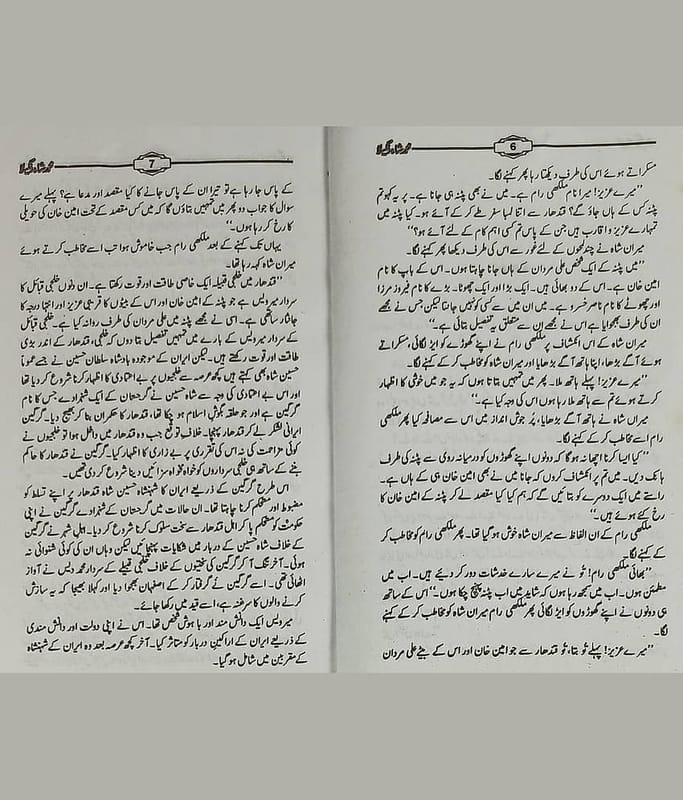 محمد شاہ رنگیلا
6
مسکراتے ہوئے اس کی طرف دیکھتا رہا پھر کہنے لگا۔
”میرے عزیز! میرا نام ملکھی رام ہے۔ میں نے بھی پٹنہ ہی جانا ہے۔ پر یہ کہو تم
پٹنہ کس کے ہاں جاؤ گے؟ قندھار سے اتنا لمبا سفر طے کر کے آئے ہو۔ کیا پٹنہ میں
تمہارے عزیز و اقارب ہیں جن کے پاس تم کسی اہم کام کے لئے آئے ہو؟“
میران شاہ نے چند لمحوں کے لئے غور سے اس کی طرف دیکھا پھر کہنے لگا۔
”میں پٹنہ کے ایک شخص علی مردان کے ہاں جانا چاہتا ہوں۔ اس کے باپ کا نام
امین خان ہے۔ اس کے دو بھائی ہیں۔ ایک بڑا اور ایک چھوٹا۔ بڑے کا نام فیروز مرزا
اور چھوٹے کا نام ناصر خسرو ہے۔ میں ان میں سے کسی کو نہیں جانتا لیکن جس نے مجھے
ان کی طرف بھجوایا ہے اس نے مجھے ان سے متعلق یہ تفصیل بتائی ہے۔“
میران شاہ کے اس انکشاف پر ملکھی رام نے اپنے گھوڑے کو ایڑ لگائی، مسکراتے
ہوئے آگے بڑھا، اپنا ہاتھ آگے بڑھایا اور میران شاہ کو مخاطب کر کے کہنے لگا۔
”میرے عزیز! پہلے ہاتھ ملا۔ پھر میں تمہیں بتاتا ہوں کہ یہ جو میں خوشی کا اظہار
کرتے ہوئے تم سے ہاتھ ملا رہا ہوں اس کی وجہ کیا ہے۔“
میران شاہ نے ہاتھ آگے بڑھایا، پُر جوش انداز میں اس سے مصافحہ کیا پھر ملکھی
رام اسے مخاطب کر کے کہنے لگا۔
”کیا ایسا کرنا اچھا نہ ہو گا کہ دونوں اپنے گھوڑوں کو درمیانہ روی سے پٹنہ کی طرف
ہانک دیں۔ میں تم پر انکشاف کروں کہ جانا میں نے بھی امین خان ہی کے ہاں ہے۔
راستے میں ایک دوسرے کو بتائیں گے کہ ہم کیا کیا مقصد لے کر پٹنہ کے امین خان کا
رخ کئے ہوئے ہیں۔“
ملکھی رام کے ان الفاظ سے میران شاہ خوش ہو گیا تھا۔ پھر ملکھی رام کو مخاطب کر
کے کہنے لگا۔
”بھائی ملکھی رام! تُو نے میرے سارے خدشات دور کر دیئے ہیں۔ اب میں
مطمئن ہوں۔ اب میں سمجھ رہا ہوں کہ شاید میں اب پٹنہ پہنچ چکا ہوں۔“ اس کے ساتھ
ہی دونوں نے اپنے گھوڑوں کو ایڑ لگائی پھر ملکھی رام میران شاہ کو مخاطب کر کے کہنے
لگا۔
”میرے عزیز! پہلے تُو بتا، تُو قندھار سے جو امین خان اور اس کے بیٹے علی مردان
محمد شاہ رنگیلا
7
کے پاس جا رہا ہے تو تیرا ان کے پاس جانے کا کیا مقصد اور مدعا ہے؟ پہلے میرے
سوال کا جواب دو پھر میں تمہیں بتاؤں گا کہ میں کس مقصد کے تحت امین خان کی حویلی
کا رخ کر رہا ہوں۔“
یہاں تک کہنے کے بعد ملکھی رام جب خاموش ہوا تب اسے مخاطب کرتے ہوئے
میران شاہ کہہ رہا تھا۔
”قندھار میں خلجی قبیلہ ایک خاصی طاقت اور قوت رکھتا ہے۔ ان دنوں خلجی قبائل کا
سردار میر ویس ہے جو پٹنہ کے امین خان اور اس کے بیٹوں کا قریبی عزیز اور انتہا درجہ کا
جانثار ساتھی ہے۔ اسی نے مجھے پٹنہ میں علی مردان کی طرف روانہ کیا ہے۔ خلجی قبائل
کے سردار میر ویس کے بارے میں تمہیں تفصیل بتا دوں کہ خلجی، قندھار کے اندر بڑی
طاقت اور قوت رکھتے ہیں۔ لیکن ایران کے موجودہ بادشاہ سلطان حسین نے جسے عموماً
حسین شاہ بھی کہتے ہیں کچھ عرصہ سے خلجیوں پر بے اعتمادی کا اظہار کرنا شروع کر دیا تھا
اور اس بے اعتمادی کی وجہ سے شاہ حسین نے گرجستان کے ایک شہزادے جس کا نام
گرگین ہے اور جو حلقہ بگوش اسلام ہو چکا تھا، قندھار کا حکمران بنا کر بھیج دیا۔ گرگین
ایرانی لشکر لے کر قندھار پہنچا۔ خلاف توقع جب وہ قندھار میں داخل ہوا تو خلجیوں نے
کوئی مزاحمت کی نہ اس کی تقرری پر بے زاری کا اظہار کیا۔ گرگین نے قندھار کا حاکم
بننے کے ساتھ ہی خلجی سرداروں کو خواہ مخواہ سزائیں دینا شروع کر دی تھیں۔
اس طرح گرگین کے ذریعے ایران کا شہنشاہ حسین شاہ قندھار پر اپنے تسلط کو
مضبوط اور مستحکم کرنا چاہتا تھا۔ ان حالات میں گرجستان کے شہزادے گرگین نے اپنی
حکومت کو مستحکم پا کر اہل قندھار سے سخت سلوک کرنا شروع کر دیا۔ اہل شہر نے گرگین
کے خلاف شاہ حسین کے دربار میں شکایات پہنچائیں لیکن وہاں ان کی کوئی شنوائی نہ
ہوئی۔ آخر تنگ آ کر گرگین کی سختیوں کے خلاف خلجی قبیلے کے سردار محمد ویس نے آواز
اٹھائی تھی۔ اسے گرگین نے گرفتار کر کے اصفہان بھجوا دیا اور کہلا بھیجا کہ یہ سازش
کرنے والوں کا سرغنہ ہے، اسے قید میں رکھا جائے۔
میر ویس ایک دانش مند اور با ہوش شخص تھا۔ اس نے اپنی دولت اور دانش مندی
کے ذریعے ایران کے اراکین دربار کو متاثر کیا۔ آخر کچھ عرصہ بعد وہ ایران کے شہنشاہ
کے مقربین میں شامل ہو گیا۔